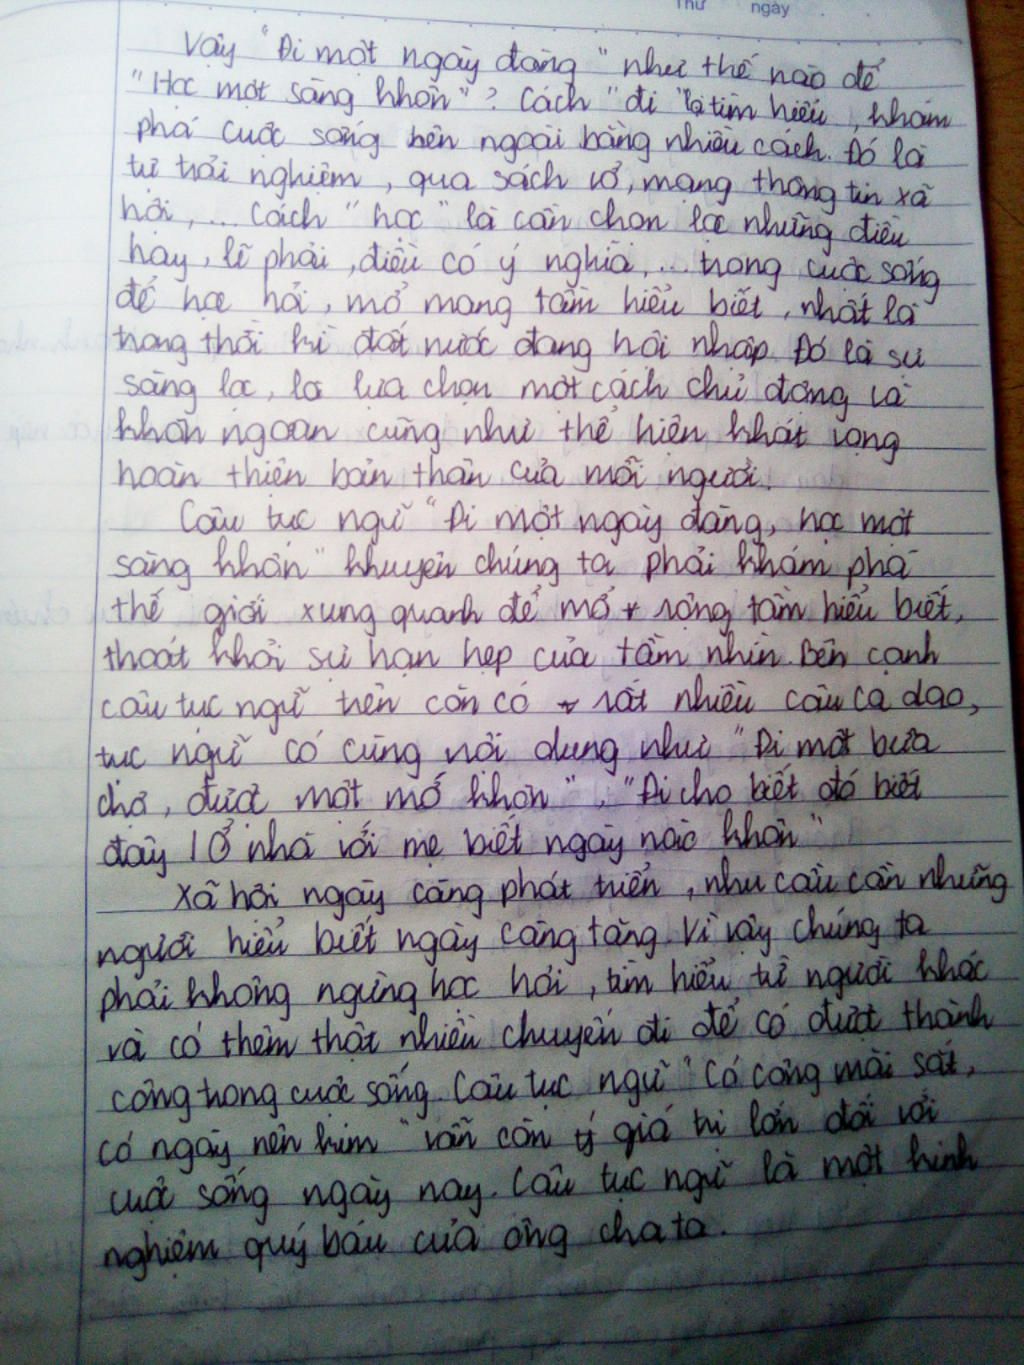 Thứ ngày
Vậy "Đi một ngày đàng" như thế nào để
"Học một sàng khôn"? Cách "đi" là tìm hiểu, khám
phá cuộc sống bên ngoài bằng nhiều cách. Đó là
từ trải nghiệm, qua sách vở, mạng thông tin xã
hội,... Cách "học" là cần chọn lọc những điều
hay, lẽ phải, điều có ý nghĩa,... trong cuộc sống
để học hỏi, mở mang tầm hiểu biết, nhất là
trong thời kì đất nước đang hội nhập. Đó là sự
sàng lọc, là lựa chọn một cách chủ động và
khôn ngoan cũng như thể hiện khát vọng
hoàn thiện bản thân của mỗi người.
Câu tục ngữ "Đi một ngày đàng, học một
sàng khôn" khuyên chúng ta phải khám phá
thế giới xung quanh để mở rộng tầm hiểu biết,
thoát khỏi sự hạn hẹp của tầm nhìn. Bên cạnh
câu tục ngữ trên còn có rất nhiều câu ca dao,
tục ngữ có cùng nội dung như "Đi một bữa
chợ, được một mớ khôn", "Đi cho biết đó biết
đây / Ở nhà với mẹ biết ngày nào khôn"
Xã hội ngày càng phát triển, nhu cầu cần những
người hiểu biết ngày càng tăng. Vì vậy chúng ta
phải không ngừng học hỏi, tìm hiểu từ người khác
và có thêm thật nhiều chuyến đi để có được thành
công trong cuộc sống. Câu tục ngữ "Có công mài sắt,
có ngày nên kim" vẫn còn ý giá trị lớn đối với
cuộc sống ngày nay. Câu tục ngữ là một kinh
nghiệm quý báu của ông cha ta.